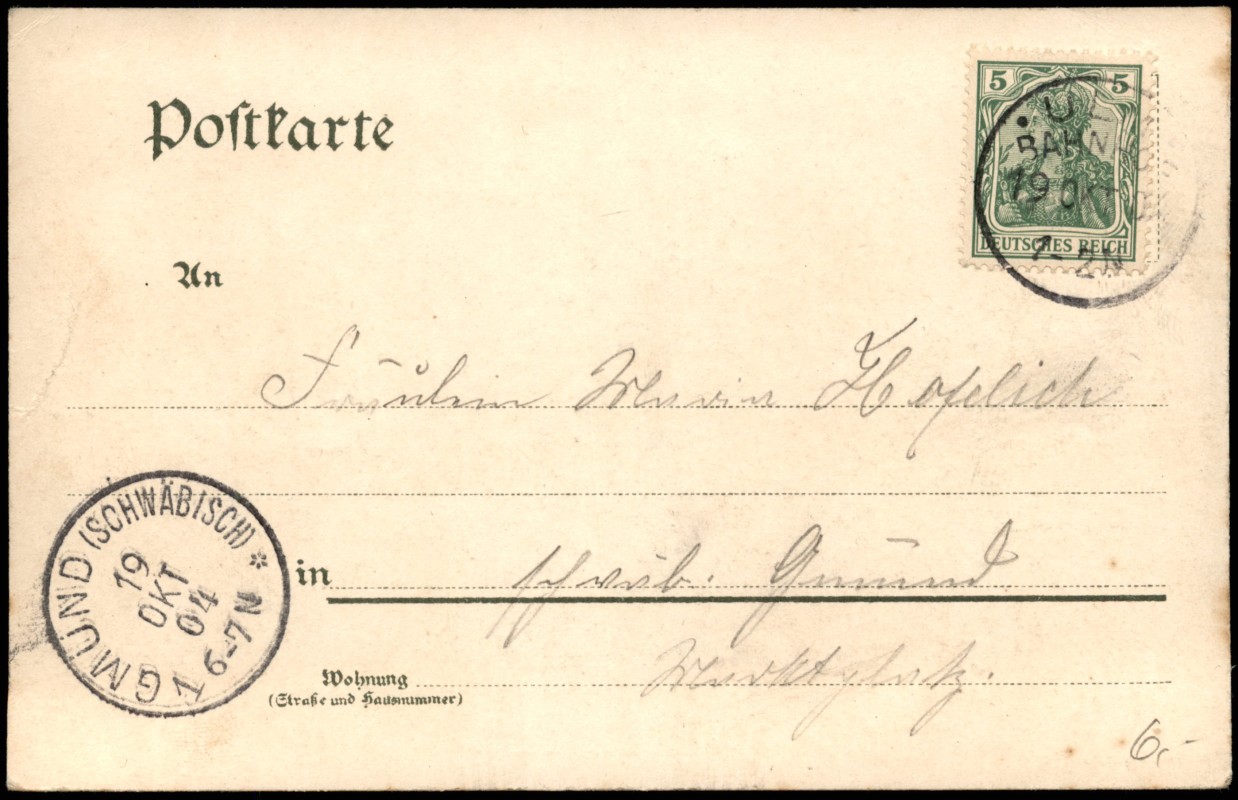 Postkarte
5 5
DEUTSCHES REICH
BAHN
19 OKT
1-2N
An
Fräulein Maria Hofelich
in schwäb. Gmünd
Wohnung Marktplatz.
(Straße und Hausnummer)
GMÜND (SCHWÄBISCH) *
19
OKT
04
6-7N
1
6,-